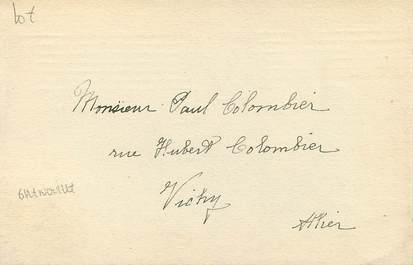 lot
Monsieur Paul Colombier
rue Hubert Colombier
Vichy
Allier